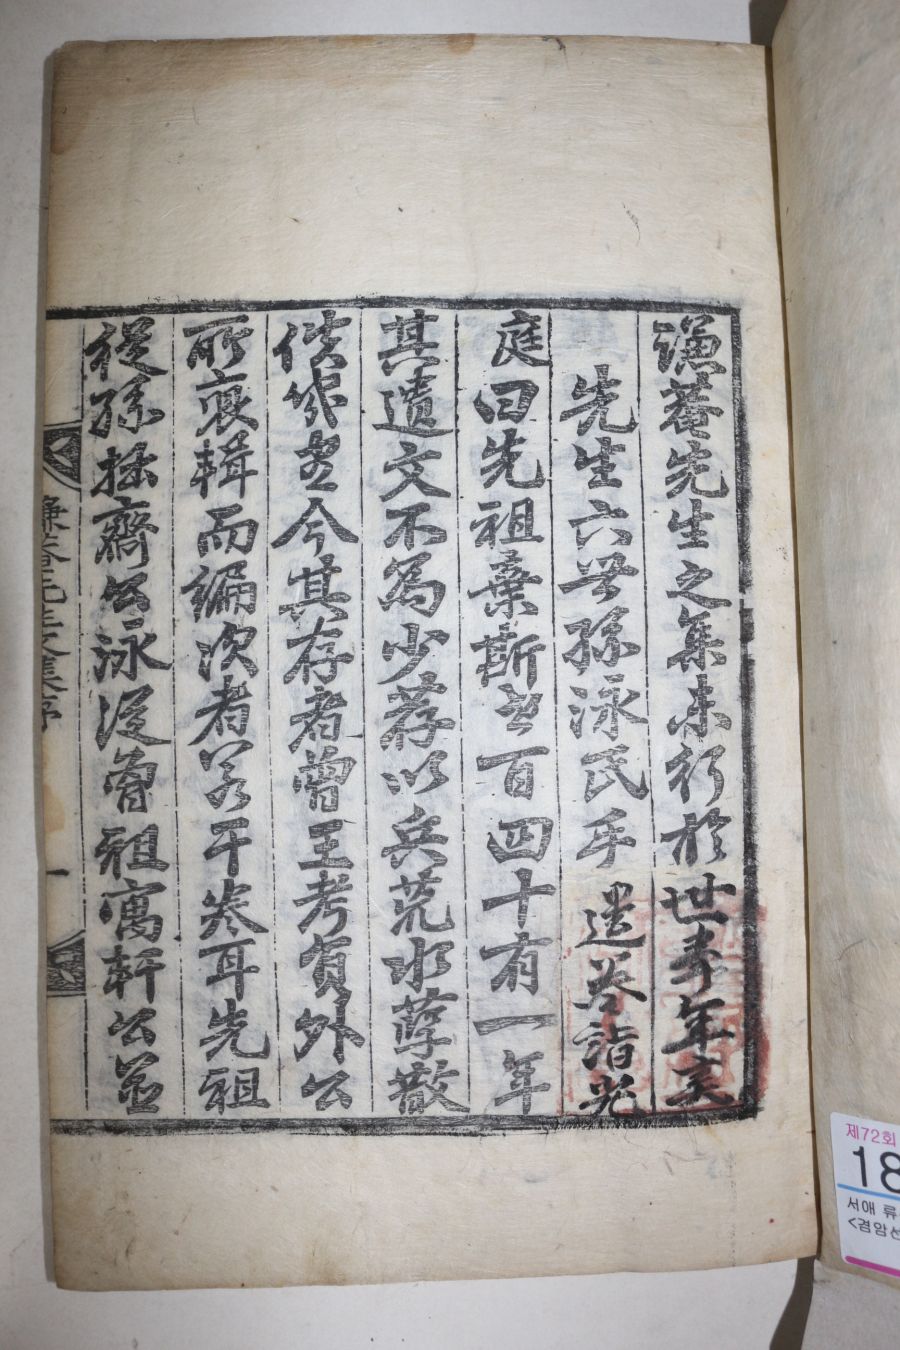 謙菴先生之集未行於世幾年矣
先生六世孫泳氏手遺卷詣光
庭曰先祖棄斯世百四十有一年
其遺文不爲少荐以兵荒水孽散
佚幾盡今其存者曾王考貟外公
所裒輯而編次者若干卷耳先祖
從孫拙齋公泳從曾祖寓軒公並
謙菴先生文集序
一
제72회
18
서애 류
<겸암선